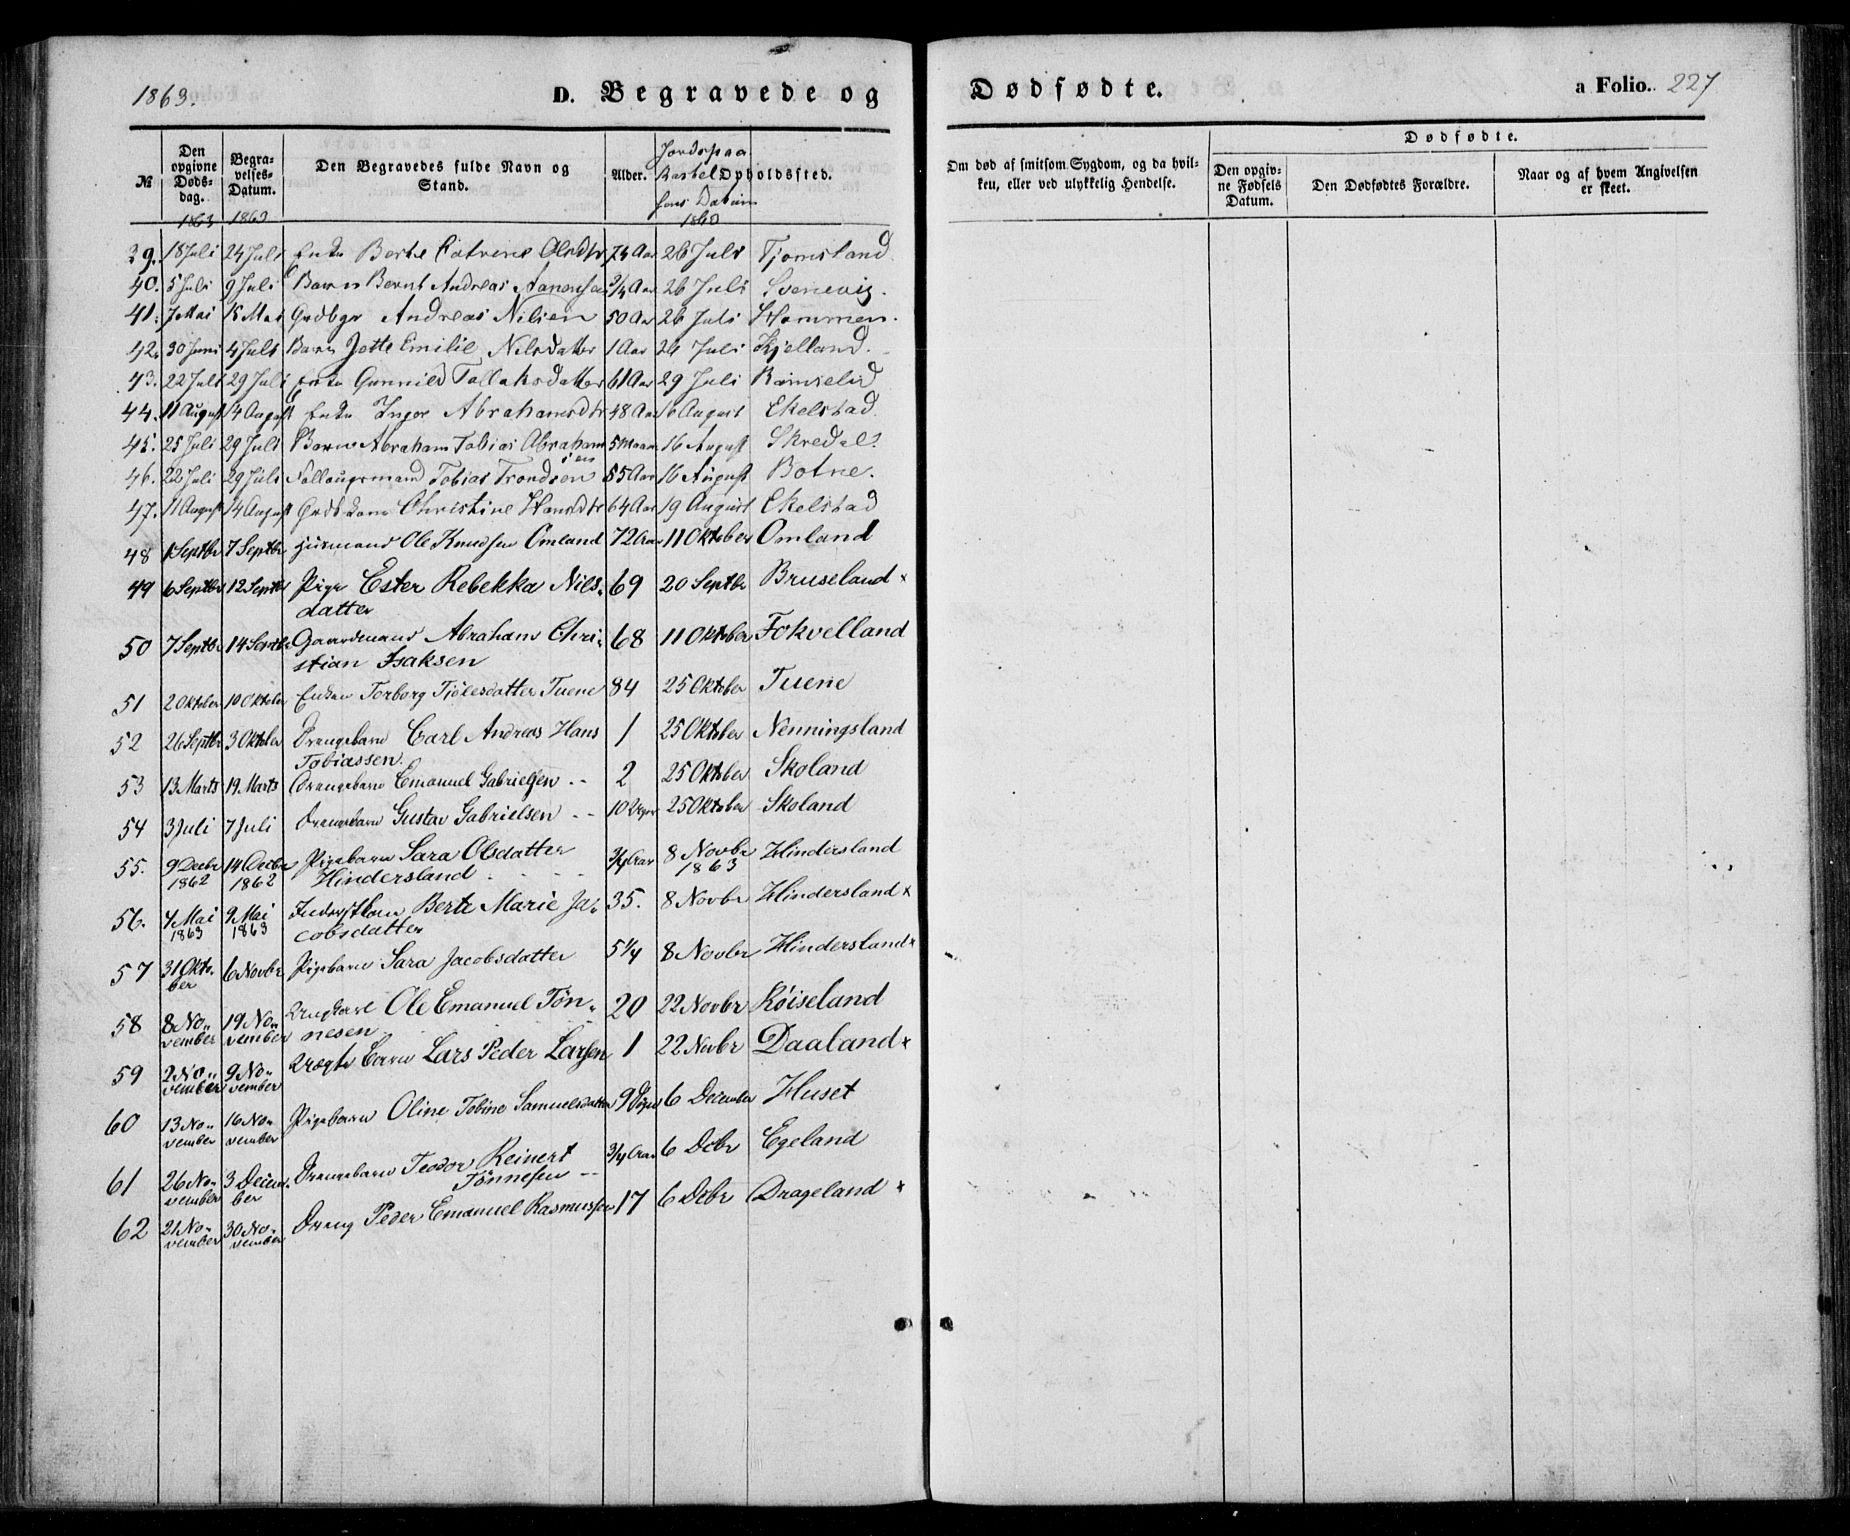 1863.
D. Begravede og
Dødfødte.
a Folio. 227
№
Den opgivne Døds-dag.
Begra-velses-Datum.
Den Begravedes fulde Navn og Stand.
Alder.
Jordspaa-kastelsens Datum
Opholdssted.
Om død af smitsom Sygdom, og da hvil-ken, eller ved ulykkelig Hendelse.
Dødfødte.
Den opgiv-ne Fødsels Datum.
Den Dødfødtes Forældre.
Naar og af hvem Angivelsen er skeet.
1863 1863 1863
39. 18 Juli 24 Juli Enke Berte Catrine Olsdtr 74 Aar 26 Juli Tjomsland
40. 5 Juli 9 Juli Barn Bernt Andreas Aanensen 3/4 Aar 26 Juli Svenevig.
41. 7 Mai 15 Mai Grdbgr Andreas Nilsen 50 Aar 26 Juli Stommen.
42. 30 Juni 4 Juli Barn Jette Emilie Nilsdatter 1 Aar 26 Juli Kjelland.
43. 22 Juli 29 Juli Enke Gunnild Tallaksdatter 61 Aar 29 Juli Ramselid
44. 11 August 14 August Enke Inger Abrahamsdtr 48 Aar 16 August Ekelstad
45. 25 Juli 29 Juli Barn Abraham Tobias Abraham
sen 5 Maan 16 August Skredal?
46. 22 Juli 29 Juli Follaugsmand Tobias Trondsen 85 Aar 16 August Botne.
47. 11 August 14 August Grdb Kone Christine Hansdtr 64 Aar 19 August Ekelstad
48 1 Septbr 7 Septbr Huusmand Ole Knudsen Omland 72 Aar 11 Oktober Omland
49 6 Septbr 12 Septbr Pige Ester Rebekka Nils-
datter 69 20 Septbr Bruseland x
50 7 Septbr 14 Septbr Gaardmand Abraham Chri-
stian Isaksen 68 11 Oktober Fokvelland
51 2 Oktober 10 Oktober Enken Torborg Tjølesdatter Tuene 84 25 Oktober Tuene
52 26 Septbr 3 Oktober Drengebarn Carl Andreas Hans
Tobiassen. 1 25 Oktober Nenningsland
53 13 Marts 19 Marts Drengebarn Emanuel Gabrielsen 2 25 Oktober Skoland
54 3 Juli 7 Juli Drengebarn Gustav Gabrielsen 10 Uger 25 Oktober Skoland
55. 9 Decbr 14 Decbr Pigebarn Sara Olsdatter 3/4 Aar 8 Novbr Hindersland
1862 1862 Hindersland 1863
56. 4 Mai 9 Mai Inderstkone Berte Marie Ja- 35. 8 Novbr Hindersland x
1863 1863 cobsdatter
57 31 Okto- 6 Novbr Pigebarn Sara Jacobsdatter 5 1/4 8 Novbr Hindersland x
ber
58 8 No- 19 No- Ungkarl Ole Emanuel Tøn- 20 22 Novbr Røiseland
vember vember nesen
59 2 No- 9 No- Uægte Barn Lars Peder Larsen 1 22 Novbr Daaland x
vember vember
60 13 No- 16 No- Pigebarn Oline Tobine Samuelsdatter 9 Dage 6 December Huset
vember vember
61 26 No- 3 Decem- Drengebarn Teodor Reinert 3/4 Aar 6 Debr Egeland
vember ber Tønnesen
62 21 No- 30 No- Dreng Peder Emanuel Rasmussen 17 6 Debr Drageland x
vember vember